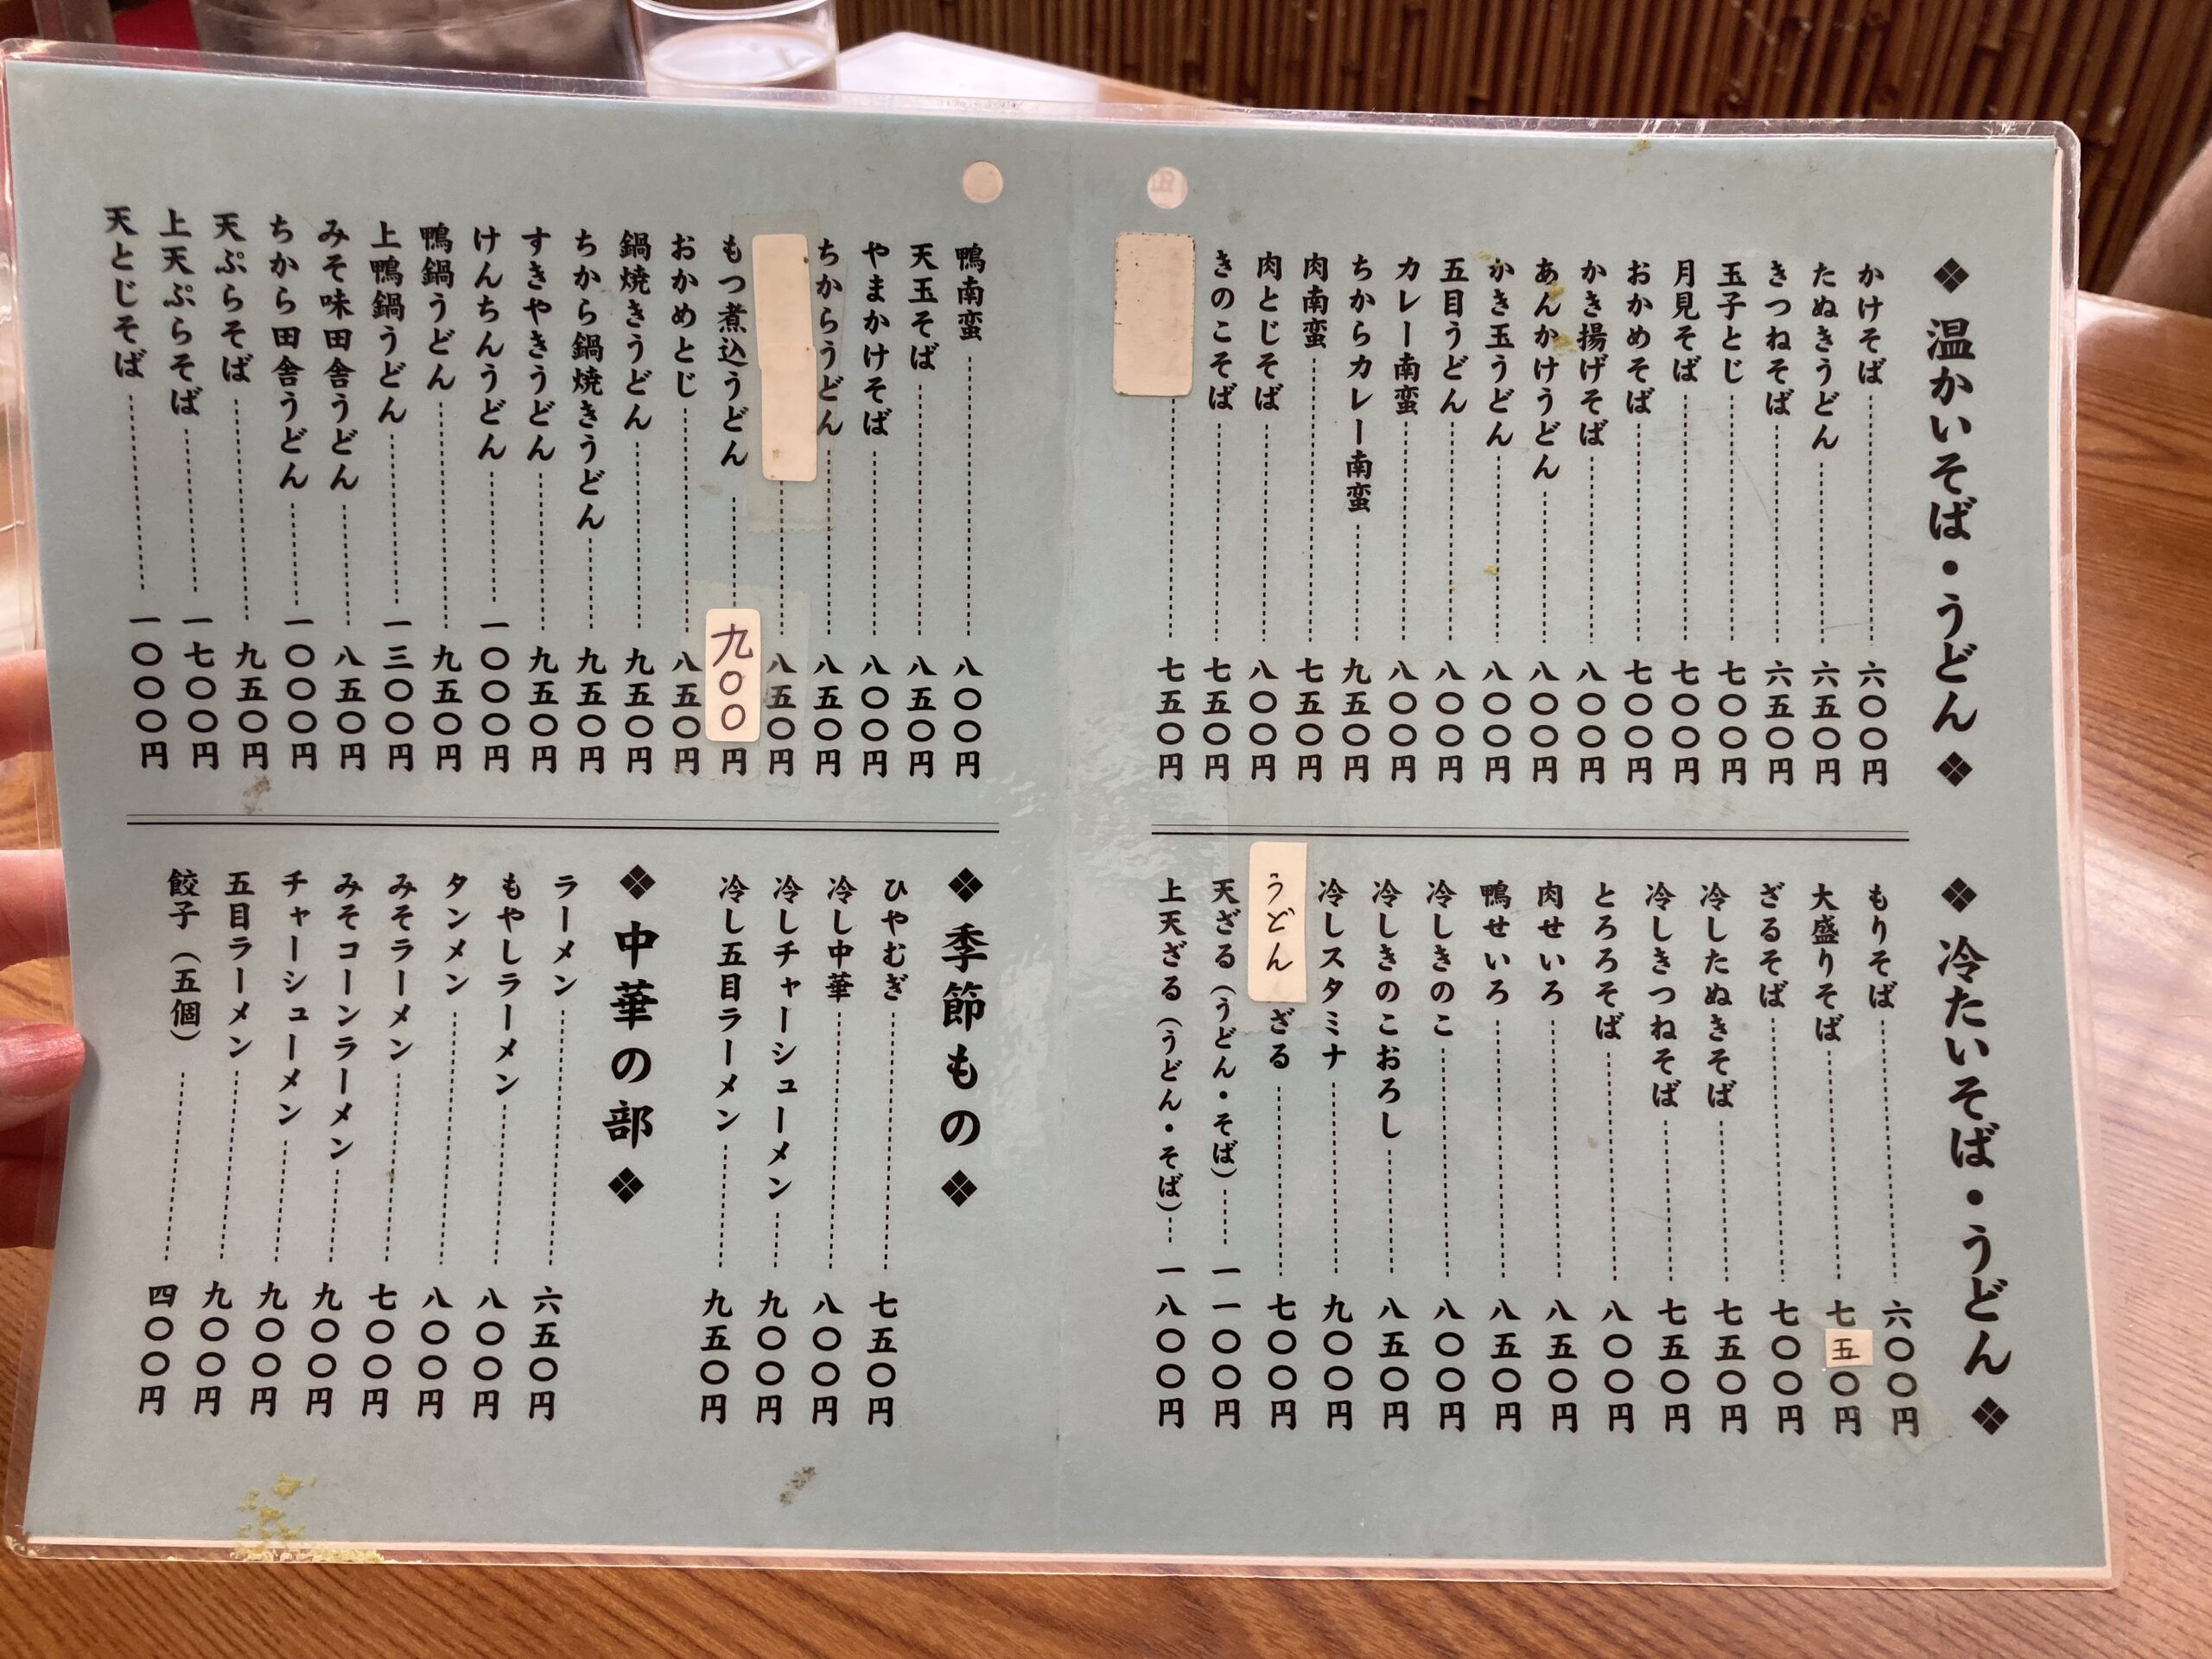 ❖ 温かいそば・うどん ❖
かけそば 六〇〇円
たぬきうどん 六五〇円
きつねそば 六五〇円
玉子とじ 七〇〇円
月見そば 七〇〇円
おかめそば 七〇〇円
かき揚げそば 八〇〇円
あんかけうどん 八〇〇円
かき玉うどん 八〇〇円
五目うどん 八〇〇円
カレー南蛮 八〇〇円
ちからカレー南蛮 九五〇円
肉南蛮 七五〇円
肉とじそば 八〇〇円
きのこそば 七五〇円
七五〇円
鴨南蛮 八〇〇円
天玉そば 八五〇円
やまかけそば 八〇〇円
ちからうどん 八五〇円
八五〇円
もつ煮込うどん 九〇〇円
おかめとじ 八五〇円
鍋焼きうどん 九五〇円
ちから鍋焼きうどん 九五〇円
すきやきうどん 九五〇円
けんちんうどん 一〇〇〇円
鴨鍋うどん 九五〇円
上鴨鍋うどん 一三〇〇円
みそ味田舎うどん 八五〇円
ちから田舎うどん 一〇〇〇円
天ぷらそば 九五〇円
上天ぷらそば 一七〇〇円
天とじそば 一〇〇〇円
❖ 冷たいそば・うどん ❖
もりそば 六〇〇円
大盛りそば 七五〇円
ざるそば 七〇〇円
冷したぬきそば 七五〇円
冷しきつねそば 七五〇円
とろろそば 八〇〇円
肉せいろ 八五〇円
鴨せいろ 八五〇円
冷しきのこ 八〇〇円
冷しきのこおろし 八五〇円
冷しスタミナ 九〇〇円
うどんざる 七〇〇円
天ざる(うどん・そば) 一一〇〇円
上天ざる(うどん・そば) 一八〇〇円
❖ 季節もの ❖
ひやむぎ 七五〇円
冷し中華 八〇〇円
冷しチャーシューメン 九〇〇円
冷し五目ラーメン 九五〇円
❖ 中華の部 ❖
ラーメン 六五〇円
もやしラーメン 八〇〇円
タンメン 八〇〇円
みそラーメン 七〇〇円
みそコーンラーメン 九〇〇円
チャーシューメン 九〇〇円
五目ラーメン 九〇〇円
餃子(五個) 四〇〇円